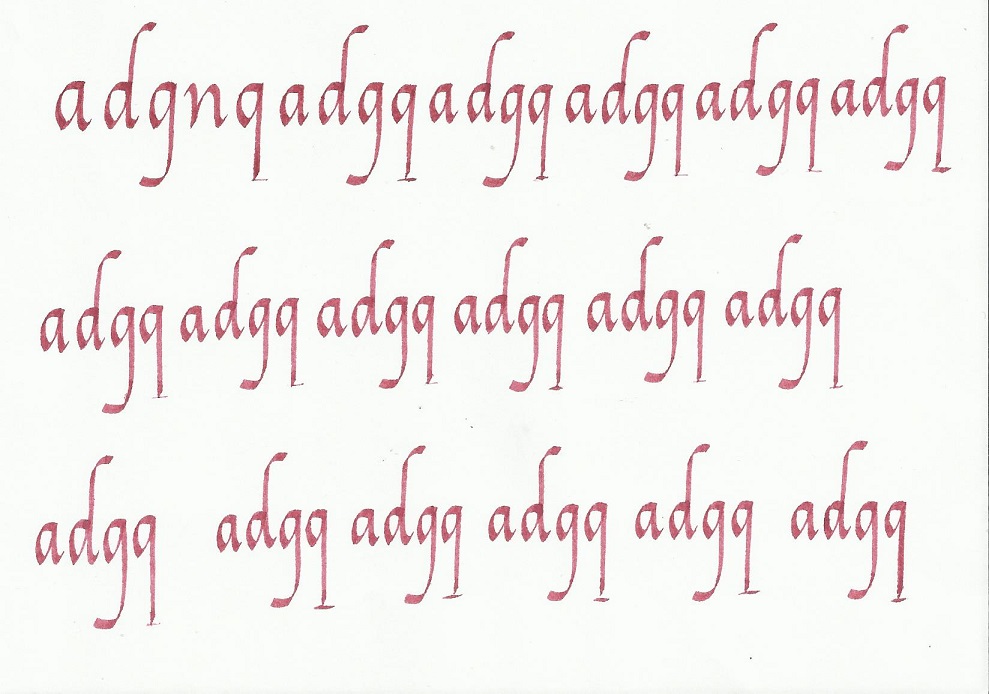 adgnq adgq adgq adgq adgq adgq
adgq adgq adgq adgq adgq adgq
adgq adgq adgq adgq adgq adgq